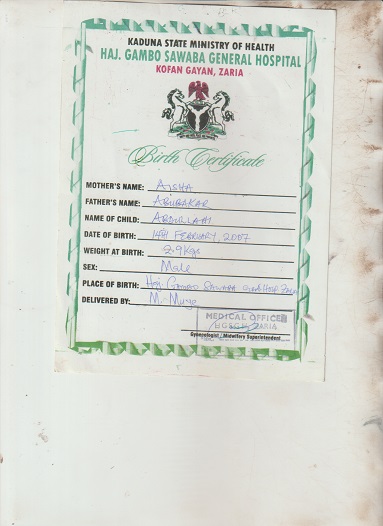 KADUNA STATE MINISTRY OF HEALTH
HAJ. GAMBO SAWABA GENERAL HOSPITAL
KOFAN GAYAN, ZARIA
Birth Certificate
MOTHER'S NAME: AISHA
FATHER'S NAME: ABUBAKAR
NAME OF CHILD: ABDULLAHI
DATE OF BIRTH: 14TH FEBRUARY, 2007
WEIGHT AT BIRTH: 2.9kgs
SEX: Male
PLACE OF BIRTH: Haj. GAMBO SAWABA
DELIVERED BY: M.
MEDICAL OFFICER
ZARIA
Gynecologist / Midwifery Superintendent